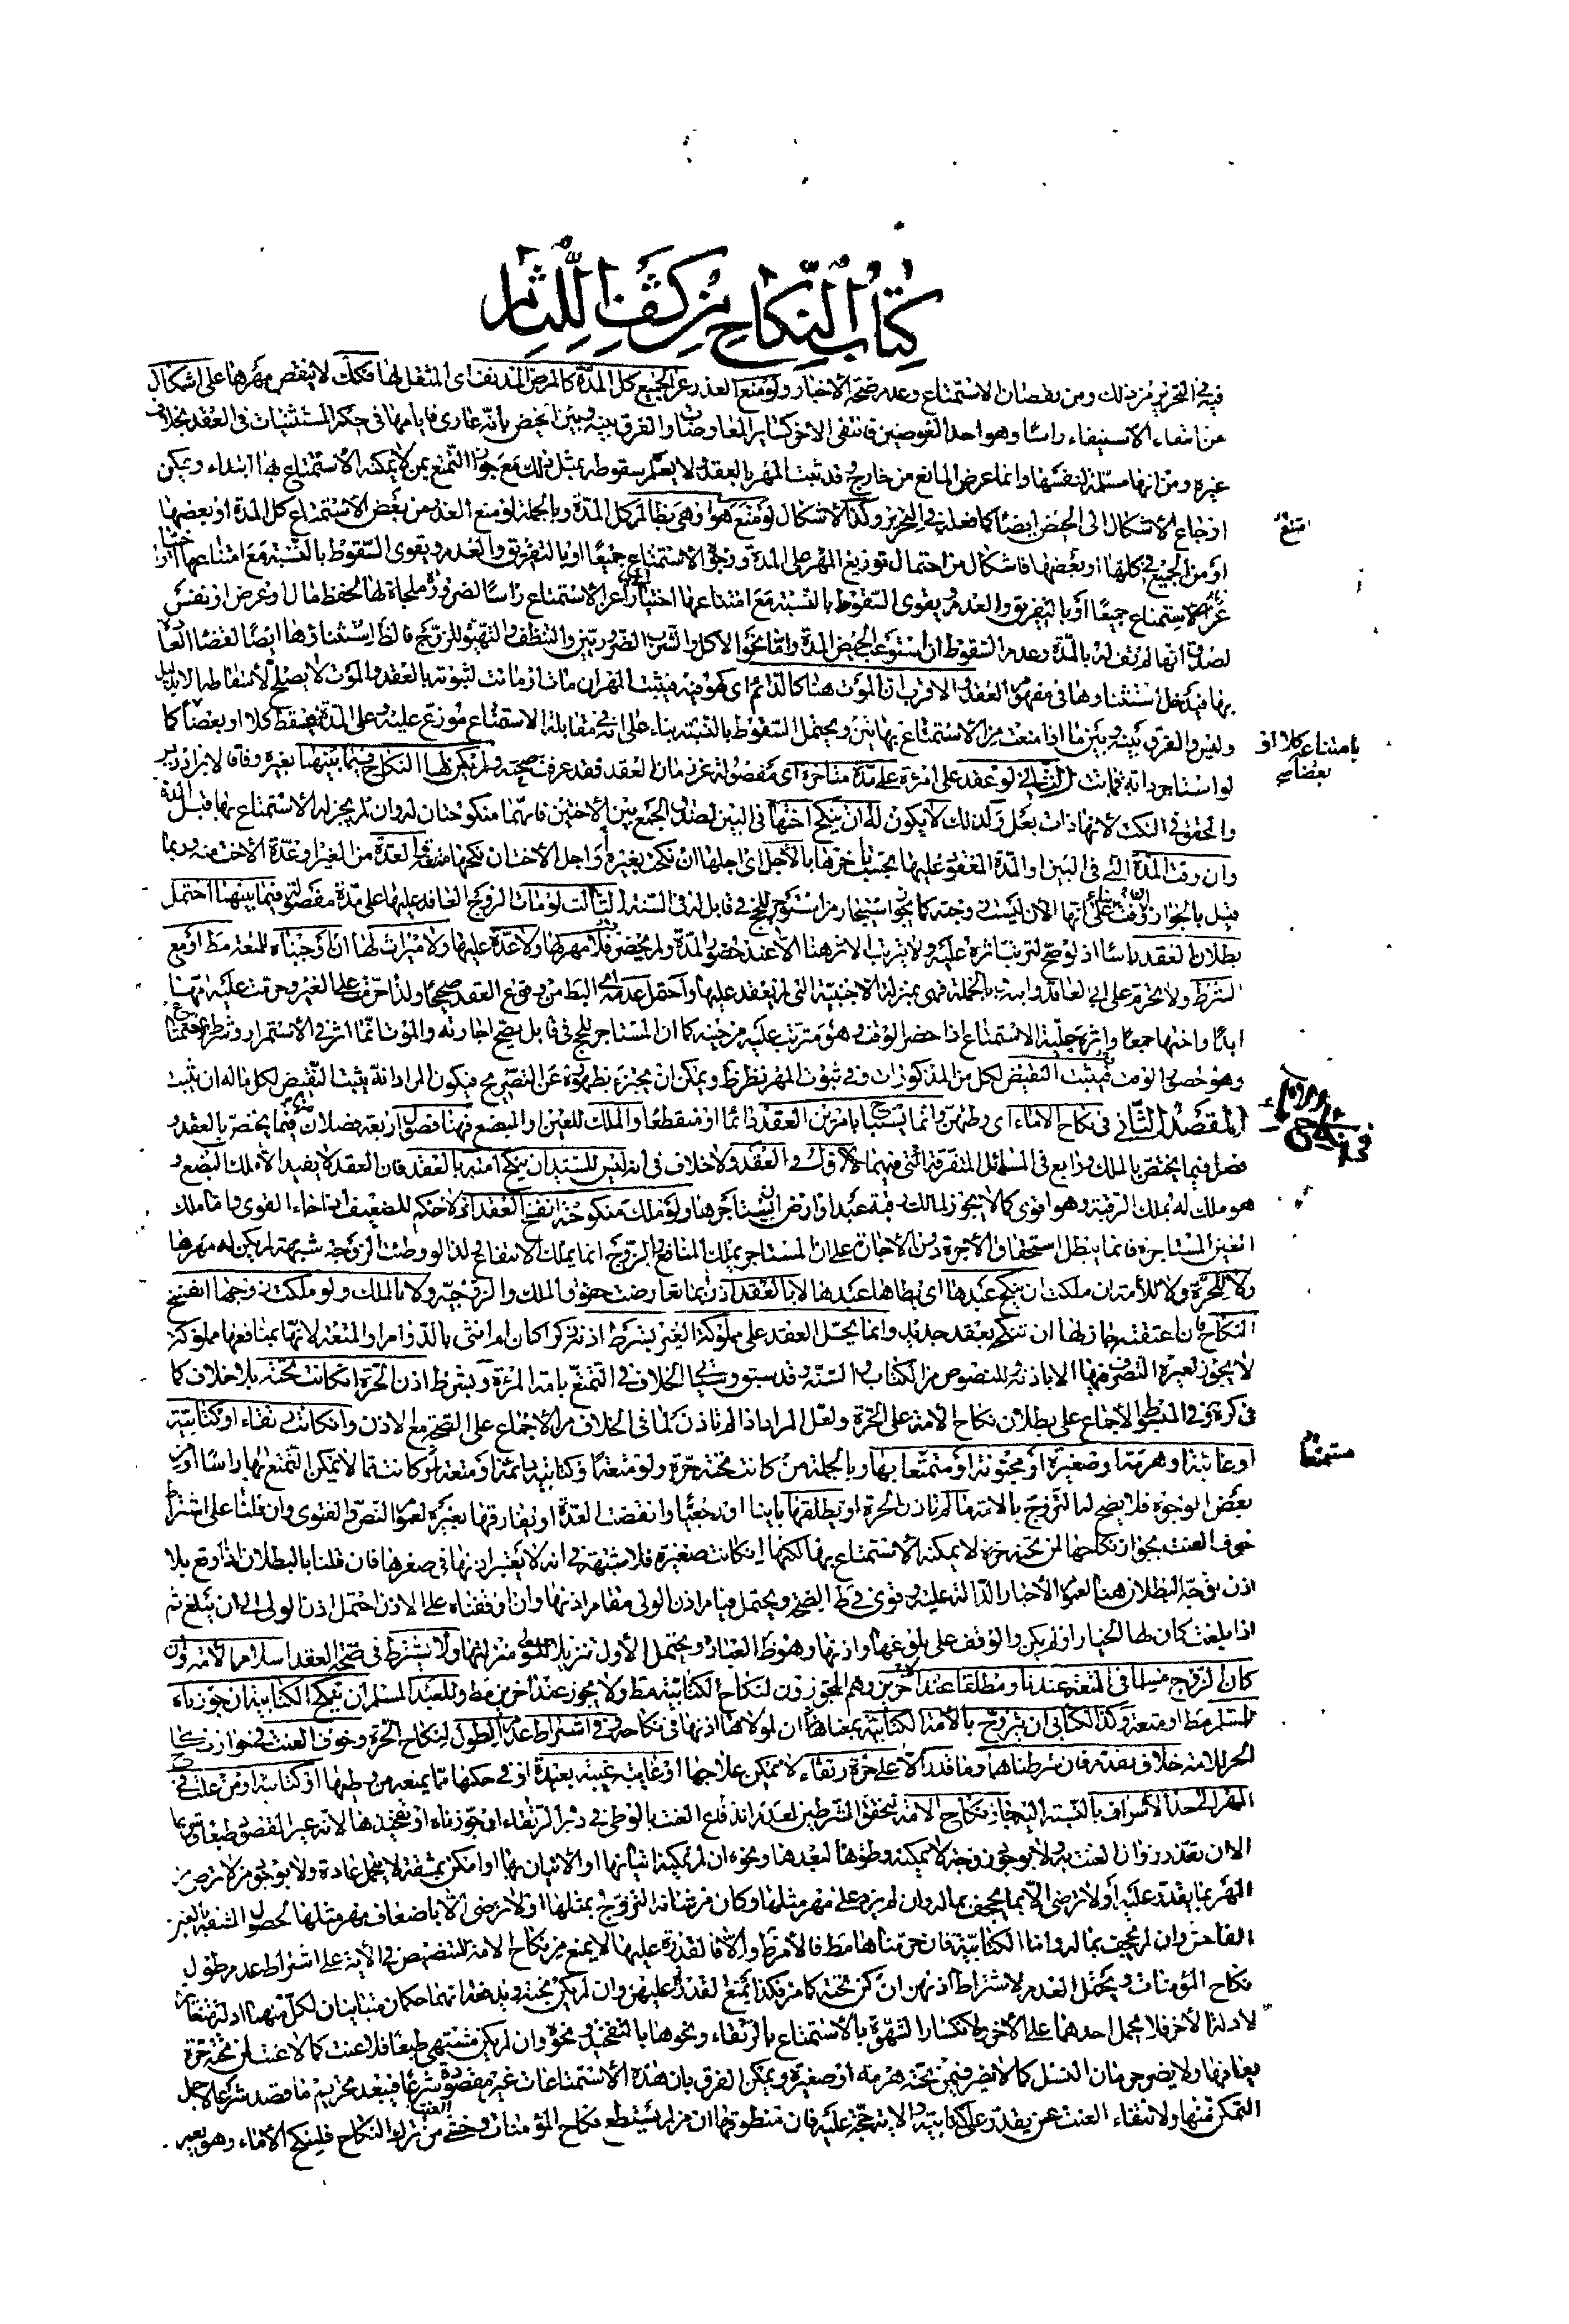 كتاب النكاح من كشف اللثام
فيه في التحرير من ذلك ومن نقصان الاستمتاع وعدم صحة الأخبار ولو منع العذر عن الجميع كل المدة كالمرض المدنف اي المثقل لها فكك لا ينقص مهرها على اشكال
من انتفاء الاستيفاء راسًا وهو احد العوضين فانتفى الاخر كسائر المعاوضات والفرق بينه وبين الحيض بانه عادي فايامها في حكم المستثنيات في العقد بخلاف
غيره ومن انها مسلمة لنفسها وانما عرض المانع من خارج وقد ثبت المهر بالعقد ولا يعلم سقوطه بمثل ذلك مع جواز التمتع بمن لا يمكنه الاستمتاع بها ابتداء ويمكن
ارجاع الاشكال الى الحيض ايضًا كما فعله في التحرير وكذا الاشكال لو منع هو او هي بظالم كل المدة وبالجملة لو منع العذر من بعض الاستمتاع كل المدة او بعضها
تمنع
او من الجميع في كلها او بعضها فاشكال من احتمال توزيع المهر على المدة ووجوه الاستمتاع جميعًا او بالتفريق والعدم ويقوى السقوط بالنسبة مع امتناعها اختيارا
عن الاستمتاع جميعًا او بالتفريق والعدم ويقوى السقوط بالنسبة مع امتناعها اختيارًا عن الاستمتاع راسًا لضرورة ملجاة لها لحفظ مال او عرض او نفس
لصدق انها لم تف له بالمدة وعدم السقوط ان استوعب الحيض المدة واما نحو الاكل والشرب الضروريين والتنظف والتهيؤ للزوج فالظ استثناؤها ايضًا لقضاء العادة
بها فيدخل استثناؤها في مفهوم العقد والاقرب ان الموت هنا كالدائم اي كهو فيه فيثبت المهر ان مات او ماتت لثبوته بالعقد والموت لا يصلح لاسقاطه الا بدليل
وليس والفرق بينه وبين ما اذا منعت من الاستمتاع بها بين ويحتمل السقوط بالنسبة بناء على انه في مقابلة الاستمتاع موزع عليه وعلى المدة فيسقط كلا او بعضًا كما
بامتناعه كلا او
بعضا صح
لو استاجر دابة فماتت الثاني لو عقد على امرءة على مدة متاخرة اي مفصولة عن زمان العقد فقد عرفت صحته ولم يكن لها النكاح فيما بينهما بغيره وفاقا لابن ادريس
والمحقق في النكت لانها ذات بعل ولذلك لا يكون له ان ينكح اختها في البين لصدق الجمع بين الاختين فانهما منكوحتان له وان لم يجز له الاستمتاع بها قبل المدة
وان وفت المدة التي في البين او المدة المعقود عليها بحسب تاخرها بالاجل اي اجلها ان نكحت بغيره او اجل الاخت ان نكحها منه والعدة من الغير او عدة الاخت منه وربما
قيل بالجواز ان وفت بناء على انها الان ليست زوجته كما يجوز استيجار من استؤجر للحج في قابل له في السنة الثالث لو مات الزوج العاقد عليها على مدة مفصولة فيما بينهما احتمل
بطلان العقد راسًا اذ لو صح لترتب اثره عليه ولا يترتب الاثر هنا الا عند حضور المدة ولم يحضر فلا مهر لها ولا عدة عليها ولا ميراث لها ان اوجبناه للمتعة مط او مع
الشرط ولا يحرم على ابي العاقد وابنه وبالجملة فهي بمنزلة الاجنبية التي لم يعقد عليها واحتمل عدمه اي البط من وقوع العقد صحيحًا ولذا حرمت على الغير وحرمت عليه امها
ابدًا واختها جمعًا واثره حلية الاستمتاع اذا حضر الوقت وهو مترتب عليه من حينه كما ان المستاجر للحج في قابل يصح اجارته والموت انما اثر في الاستمرار وشطر منه
وهو حصول الوقت فيثبت النقيض لكل من المذكورات وفي ثبوت المهر نظر ظ ويمكن ان يجتزء بظهوره عن التصريح فيكون المراد انه يثبت النقيض لكل ماله ان يثبت
المقصد الثاني في نكاح الاماء اي وطئهن وانما يستباح بامرين العقد دائما او منقطعا والملك للعين او البضع فهنا فصول اربعة فصلان فيما يختص بالعقد و
فصل فيما يختص بالملك ورابع في المسائل المتفرقة الاول في العقد ولا خلاف في انه ليس للسيد ان ينكح امته بالعقد فان العقد لا يفيد الا ملك البضع و
هو ملك له بملك الرقبة وهو اقوى كما لا يجوز لمالك رقبة عبد او ارض ان يستاجرها ولو ملك منكوحته انفسخ العقد اذ لا حكم للضعيف اذا جاء القوي واما ملك
العين المستاجرة فانما يبطل استحقاق الاجرة دون الاجارة على ان المستاجر يملك المنافع والزوج انما يملك الانتفاع ولذا لو وطئت الزوجة شبهة لم يكن له مهرها
ولا للحرة ولا للامة ان ملكت ان ينكح عبدها اي يطاها عبدها لا بالعقد اذ ربما تعارضت حقوق الملك والزوجية ولا بالملك ولو ملكت زوجها انفسخ
النكاح فان اعتقته جاز لها ان تنكحه بعقد جديد وانما يحل العقد على مملوكة الغير بشرط اذنه ذكرا كان ام انثى بالدوام او المتعة لانها بمنافعها مملوكة
لا يجوز لغيره التصرف فيها الا باذنه وللنصوص من الكتاب والسنة وقد سبق وسياتي الخلاف في التمتع بامة المرءة ويشترط اذن الحرة ان كانت تحته بلا خلاف كما
ذكره وفي المبسوط الاجماع على بطلان نكاح الامة على الحرة ولعل المراد اذا لم تاذن لما في الخلاف من الاجماع على الصحة مع الاذن وان كانت رتقاء او كتابية
او غائبة او هرمة او صغيرة او مجنونة او متمتعا بها وبالجملة من كانت تحته حرة ولو متعة او كتابية دائمة او متعة او كانت مما لا يمكن التمتع بها راسًا او من
مستمتعا
بعض الوجوه فلا يصح له التزوج بالامة ما لم تاذن الحرة او يطلقها باينا او رجعيًا وانقضت العدة او يفارقها بغيره لعموم النص والفتوى وان قلنا على اشتراط
خوف العنت بجواز نكاحها لمن تحته حرة لا يمكنه الاستمتاع بها لكنها ان كانت صغيرة فلا شبهة في انه لا يعتبر اذنها في صغرها فان قلنا بالبطلان اذا وقع بلا
اذن توجه البطلان هنا لعموم الاخبار الدالة عليه وقوى في ط الصحة ويحتمل قيام اذن الولي مقام اذنها وان اوقفناه على الاذن احتمل اذن الولي الى ان تبلغ ثم
اذا بلغت كان لها الخيار او لم يكن والوقف على بلوغها واذنها وهو ظ العبارة ويحتمل الاول تنزيلا للولي منزلتها ولا يشترط في صحة العقد اسلام الامة وان
كان الزوج مسلما في المتعة عندنا ومطلقا عند اخرين وهم المجوزون لنكاح الكتابية مط ولا يجوز عند اخرين مط وللعبد المسلم ان ينكح الكتابية ان جوزناه
للمسلم مط او متعة وكذا الكتابي ان يتزوج بالامة الكتابية ان لمولاها اذنها في نكاحه وفي اشتراط عدم الطول لنكاح الحرة وخوف العنت في جواز نكاح
الحر للامة خلاف تقدم فان شرطناهما وما قدر الا على حرة رتقاء لا يمكن علاجها او غايبة غيبة بعيدة او في حكمها مما يمنعه من وطيها او كتابية او من غلت في
المهر الى حد الاسراف بالنسبة اليه جاز نكاح الامة لتحقق الشرطين لعدم اندفاع العنت بالوطي في دبر الرتقاء او جوزناه او تفخيذها لانه غير المقصود طبعا وربما
الا ان تعذر زوال العنت به ولا بوجود زوجة لا يمكنه وطؤها لبعدها ونحوه ان لم يمكنه اتيانها او الاتيان بها او امكن بمشقة لا يتحمل عادة ولا بوجود من لا ترضى من
المهر بما يقدر عليه او لا ترضى الا بما يجحف بماله وان لم يزد على مهر مثلها وكان من شانه التزوج بمثلها او لا ترضى الا باضعاف مهر مثلها لحصول المشقة بالغبن
الفاحش وان لم يجحف بماله واما الكتابية فان حرمناها مط فالامر ظ والا فالقدرة عليها لا يمنع من نكاح الامة للتنصيص في الاية على اشتراط عدم طول
نكاح المؤمنات ويحتمل العدم لاشتراط اذنهن ان كن تحته كما مر فكذا يمنع لقدرته عليهن وان لم يكن تحته ويدفعه انهما حكمان متباينان لكل منهما ادلة متغايرة
لادلة الاخر فلا يحمل احدهما على الاخر ولانكسار الشهوة بالاستمتاع بالرتقاء ونحوها بالتفخيذ ونحوه وان لم يكن مشتهى طبعًا فلا عنت كما لا عنت لمن تحته حرة
يعافها ولا يضر حرمان النسل كما لا يضر فيمن تحته هرمة او صغيرة ويمكن الفرق بان هذه الاستمتاعات غير مقصودة شرعًا فيبعد تحريم ما قصد شرعا لاجل
التمكن منها ولانتفاء العنت عمن يقدر على كتابية والاية حجة عليه فان منطوقها ان من لم يستطع نكاح المؤمنات وخشي من ترك النكاح العنت فلينكح الاماء وهو يعم